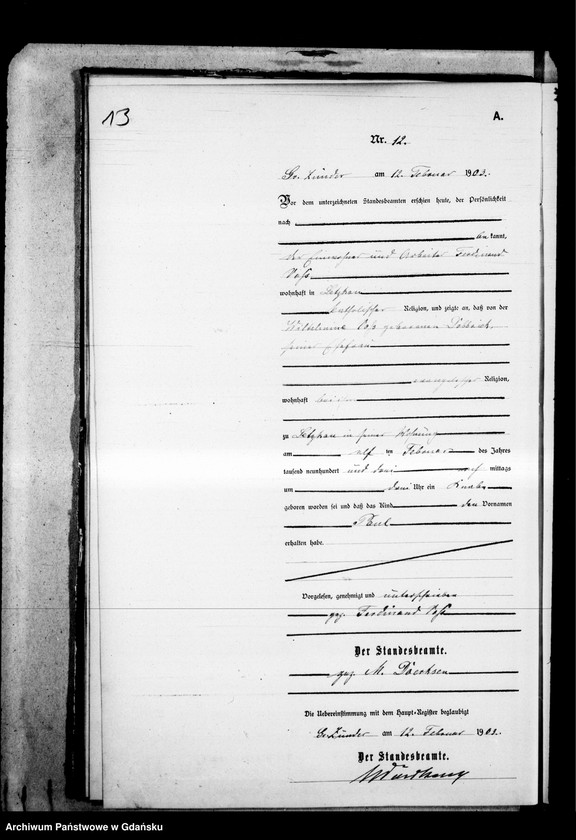 13
A.
Nr. 12.
Gr. Zünder am 12. Februar 1903.
Vor dem unterzeichneten Standesbeamten erschien heute, der Persönlichkeit
nach
bekannt,
der Einwohner und Arbeiter Ferdinand
Voß
wohnhaft in Letzkau
katholischer Religion, und zeigte an, daß von der
Wilhelmine Voß geborenen
seiner Ehefrau
evangelischer Religion,
wohnhaft bei ihm
zu Letzkau in seiner Wohnung
am elf ten Februar des Jahres
tausend neunhundert und drei nach mittags
um drei Uhr ein Knabe
geboren worden sei und daß das Kind den Vornamen
Paul
erhalten habe.
Vorgelesen, genehmigt und unterschrieben
gez. Ferdinand Voß
Der Standesbeamte.
gez. M. Doerksen
Die Uebereinstimmung mit dem Haupt-Register beglaubigt
Gr. Zünder am 12. Februar 1903.
Der Standesbeamte.
Archiwum Państwowe w Gdańsku